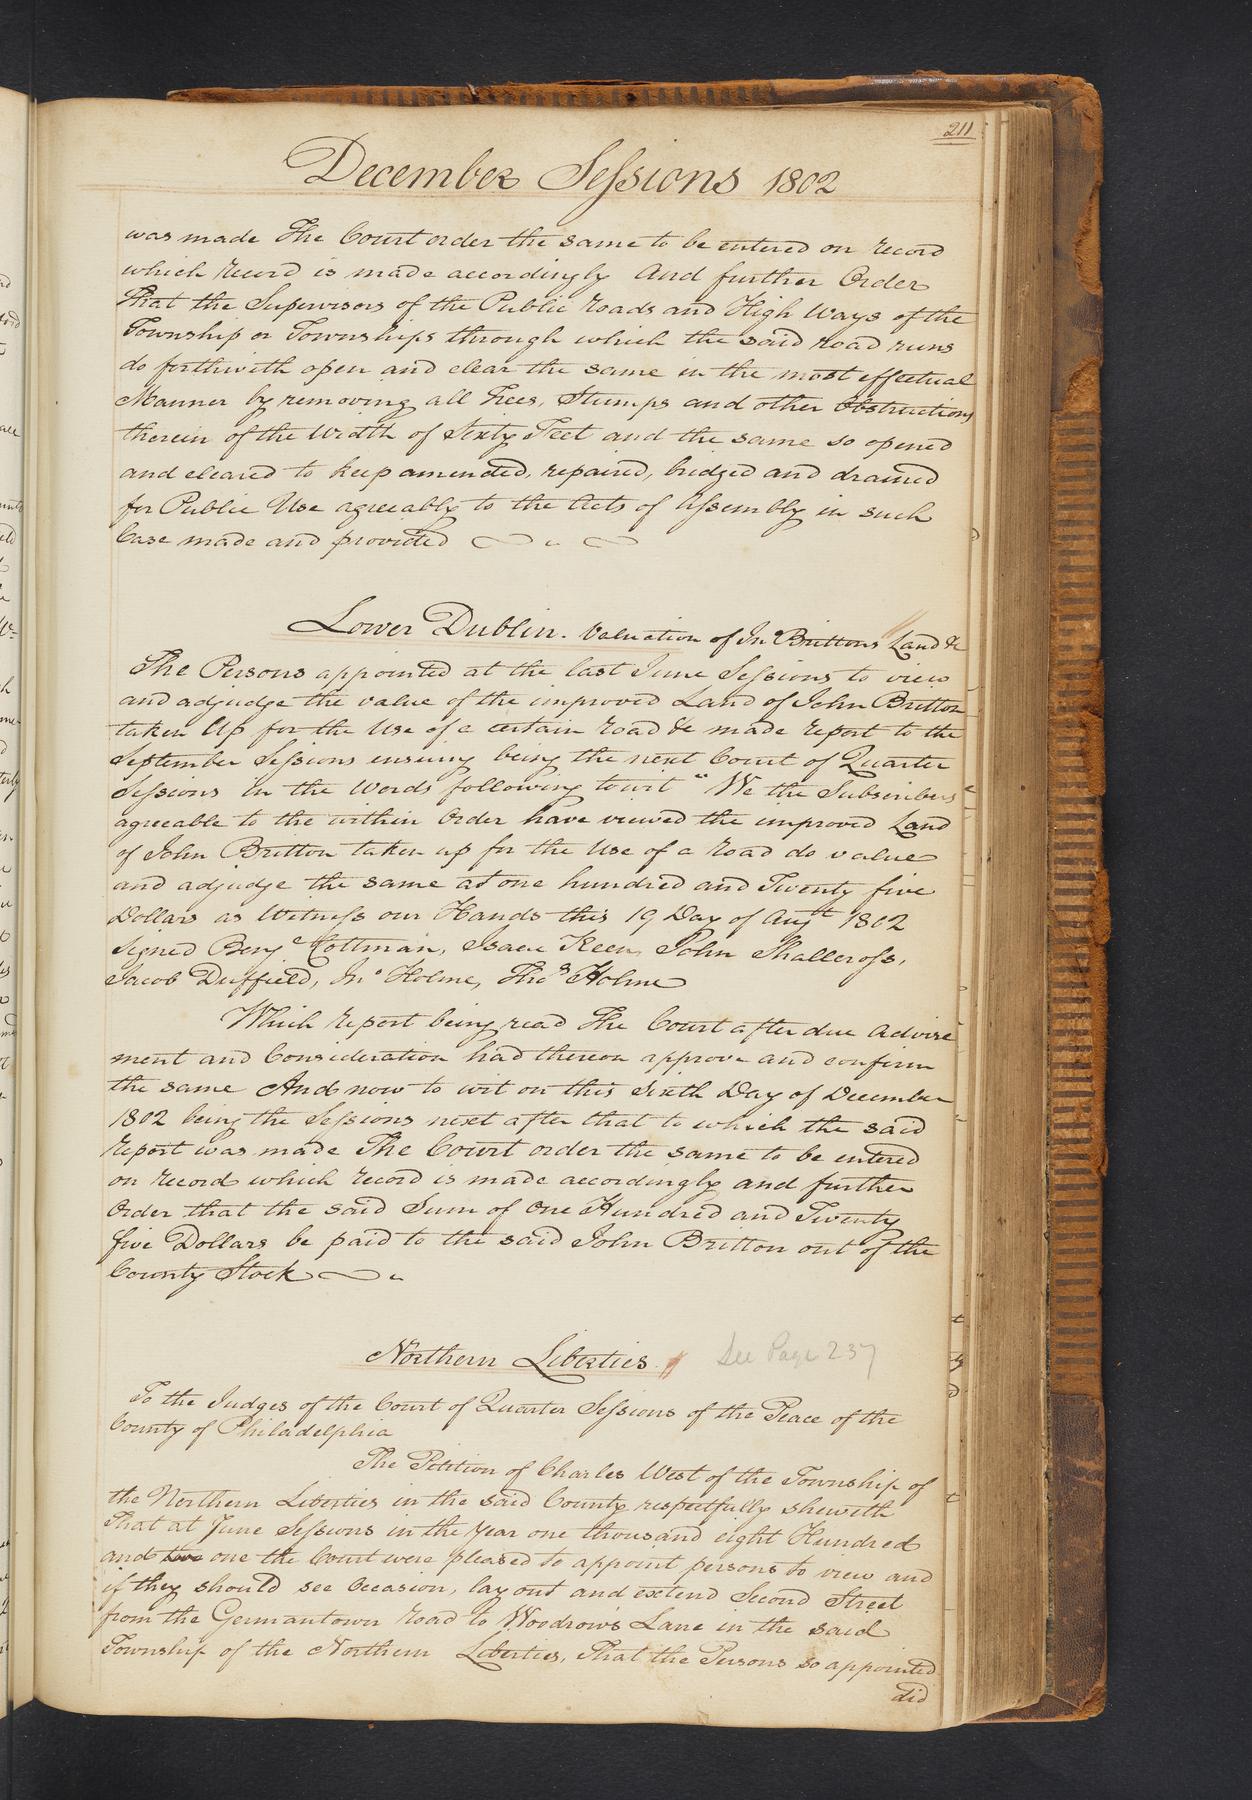 211
December Sessions 1802
was made The Court order the same to be entered on record
which record is made accordingly And further Order
That the Supervisors of the Public roads and High Ways of the
Township or Townships through which the said road runs
do forthwith open and clear the same in the most effectual
Manner by removing all Trees, Stumps and other Obstructions
therein of the Width of Sixty Feet and the same so opened
and cleared to keep amended, repaired, bridged and drained
for Public Use agreeably to the Acts of Assembly in such
Case made and provided
Lower Dublin. Valuation of Jno Brittons Land &c
The Persons appointed at the last June Sessions to view
and adjudge the value of the improved Land of John Britton
taken Up for the Use of a certain road &c made report to the
September Sessions ensuing being the next Court of Quarter
Sessions in the Words following to wit "We the Subscribers
agreeable to the within Order have viewed the improved Land
of John Britton taken up for the Use of a road do value
and adjudge the same at one hundred and Twenty five
Dollars as Witness our Hands this 19 Day of Augt 1802
Signed Benj Cottman, Isaac Keen, John Shallcross,
Jacob Duffield, Jno Holme, Thos Holme
Which report being read The Court after due Advise
ment and Consideration had thereon approve and confirm
the same And now to wit on this Sixth Day of December
1802 being the Sessions next after that to which the said
report was made The Court order the same to be entered
on record which record is made accordingly and further
Order that the said Sum of One Hundred and Twenty
five Dollars be paid to the said John Britton out of the
County Stock
Northern Liberties See Page 237
To the Judges of the Court of Quarter Sessions of the Peace of the
County of Philadelphia
The Petition of Charles West of the Township of
the Northern Liberties in the said County respectfully sheweth
That at June Sessions in the Year one thousand eight Hundred
and two one the Court were pleased to appoint persons to view and
if they should see Occasion, lay out and extend Second Street
from the Germantown road to Woodrow's Lane in the said
Township of the Northern Liberties, That the Persons so appointed
did